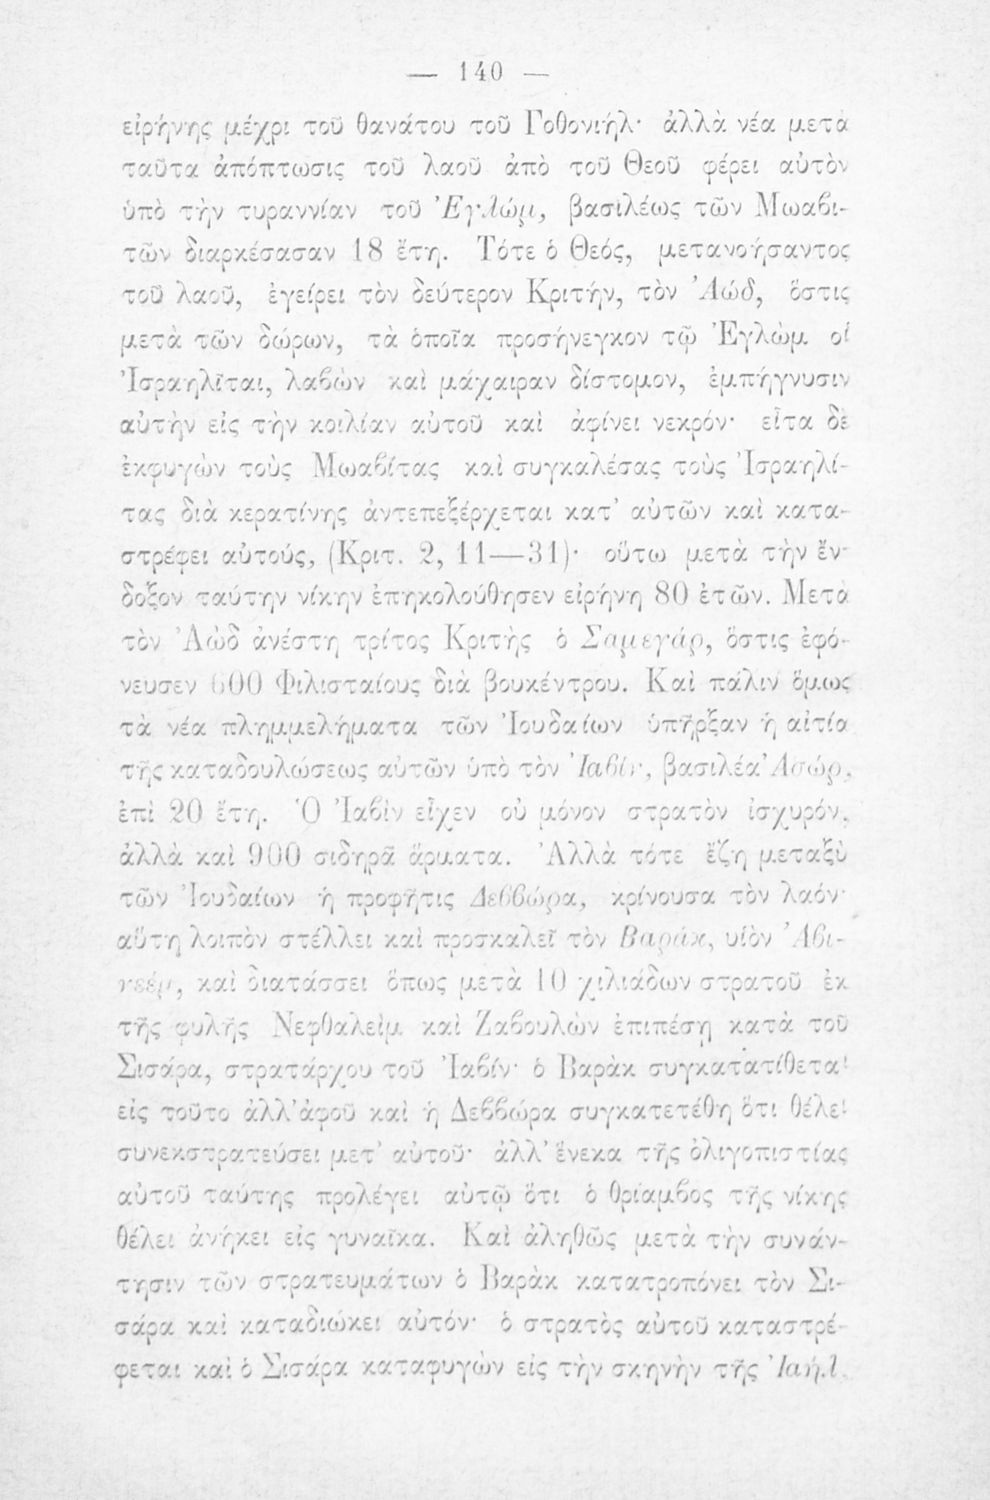 — 140 —
εἰρήνης μέχρι τοῦ θανάτου τοῦ Γοθονιήλ· ἀλλὰ νέα μετὰ
ταῦτα ἀπόπτωσις τοῦ λαοῦ ἀπὸ τοῦ Θεοῦ φέρει αὐτὸν
ὑπὸ τὴν τυραννίαν τοῦ Ἐγλώμ, βασιλέως τῶν Μωαβι-
τῶν διαρκέσασαν 18 ἔτη. Τότε ὁ Θεός, μετανοήσαντος
τοῦ λαοῦ, ἐγείρει τὸν δεύτερον Κριτήν, τὸν Ἀώδ, ὅστις
μετὰ τῶν δώρων, τὰ ὁποῖα προσήνεγκον τῷ Ἐγλὼμ οἱ
Ἰσραηλῖται, λαβὼν καὶ μάχαιραν δίστομον, ἐμπήγνυσιν
αὐτὴν εἰς τὴν κοιλίαν αὐτοῦ καὶ ἀφίνει νεκρόν· εἶτα δὲ
ἐκφυγὼν τοὺς Μωαβίτας καὶ συγκαλέσας τοὺς Ἰσραηλί-
τας διὰ κερατίνης ἀντεπεξέρχεται κατ' αὐτῶν καὶ κατα-
στρέφει αὐτούς, (Κριτ. 2, 11—31)· οὕτω μετὰ τὴν ἔν-
δοξον ταύτην νίκην ἐπηκολούθησεν εἰρήνη 80 ἐτῶν. Μετὰ
τὸν Ἀὼδ ἀνέστη τρίτος Κριτὴς ὁ Σαμεγάρ, ὅστις ἐφό-
νευσεν 600 Φιλισταίους διὰ βουκέντρου. Καὶ πάλιν ὅμως
τὰ νέα πλημμελήματα τῶν Ἰουδαίων ὑπῆρξαν ἡ αἰτία
τῆς καταδουλώσεως αὐτῶν ὑπὸ τὸν Ἰαβίν, βασιλέα Ἀσώρ,
ἐπὶ 20 ἔτη. Ὁ Ἰαβὶν εἶχεν οὐ μόνον στρατὸν ἰσχυρόν,
ἀλλὰ καὶ 900 σιδηρᾶ ἅρματα. Ἀλλὰ τότε ἔζη μεταξὺ
τῶν Ἰουδαίων ἡ προφῆτις Δεββώρα, κρίνουσα τὸν λαόν·
αὕτη λοιπὸν στέλλει καὶ προσκαλεῖ τὸν Βαράκ, υἱὸν Ἀβι-
νεέμ, καὶ διατάσσει ὅπως μετὰ 10 χιλιάδων στρατοῦ ἐκ
τῆς φυλῆς Νεφθαλεὶμ καὶ Ζαβουλὼν ἐπιπέσῃ κατὰ τοῦ
Σισάρα, στρατάρχου τοῦ Ἰαβίν· ὁ Βαρὰκ συγκατατίθεται
εἰς τοῦτο ἀλλ' ἀφοῦ καὶ ἡ Δεββώρα συγκατετέθη ὅτι θέλει
συνεκστρατεύσει μετ' αὐτοῦ· ἀλλ' ἕνεκα τῆς ὀλιγοπιστίας
αὐτοῦ ταύτης προλέγει αὐτῷ ὅτι ὁ θρίαμβος τῆς νίκης
θέλει ἀνήκει εἰς γυναῖκα. Καὶ ἀληθῶς μετὰ τὴν συνάν-
τησιν τῶν στρατευμάτων ὁ Βαρὰκ κατατροπόνει τὸν Σι-
σάρα καὶ καταδιώκει αὐτόν· ὁ στρατὸς αὐτοῦ καταστρέ-
φεται καὶ ὁ Σισάρα καταφυγὼν εἰς τὴν σκηνὴν τῆς Ἰαὴλ